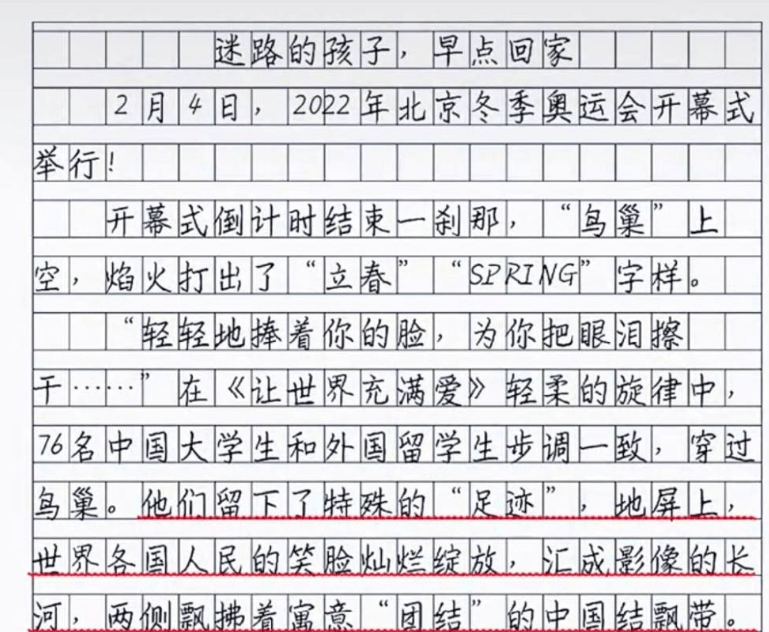 迷路的孩子，早点回家
2月4日，2022年北京冬季奥运会开幕式
举行！
开幕式倒计时结束一刹那，“鸟巢”上
空，焰火打出了“立春”“SPRING”字样。
“轻轻地捧着你的脸，为你把眼泪擦
干……”在《让世界充满爱》轻柔的旋律中，
76名中国大学生和外国留学生步调一致，穿过
鸟巢。他们留下了特殊的“足迹”，地屏上，
世界各国人民的笑脸灿烂绽放，汇成影像的长
河，两侧飘拂着寓意“团结”的中国结飘带。